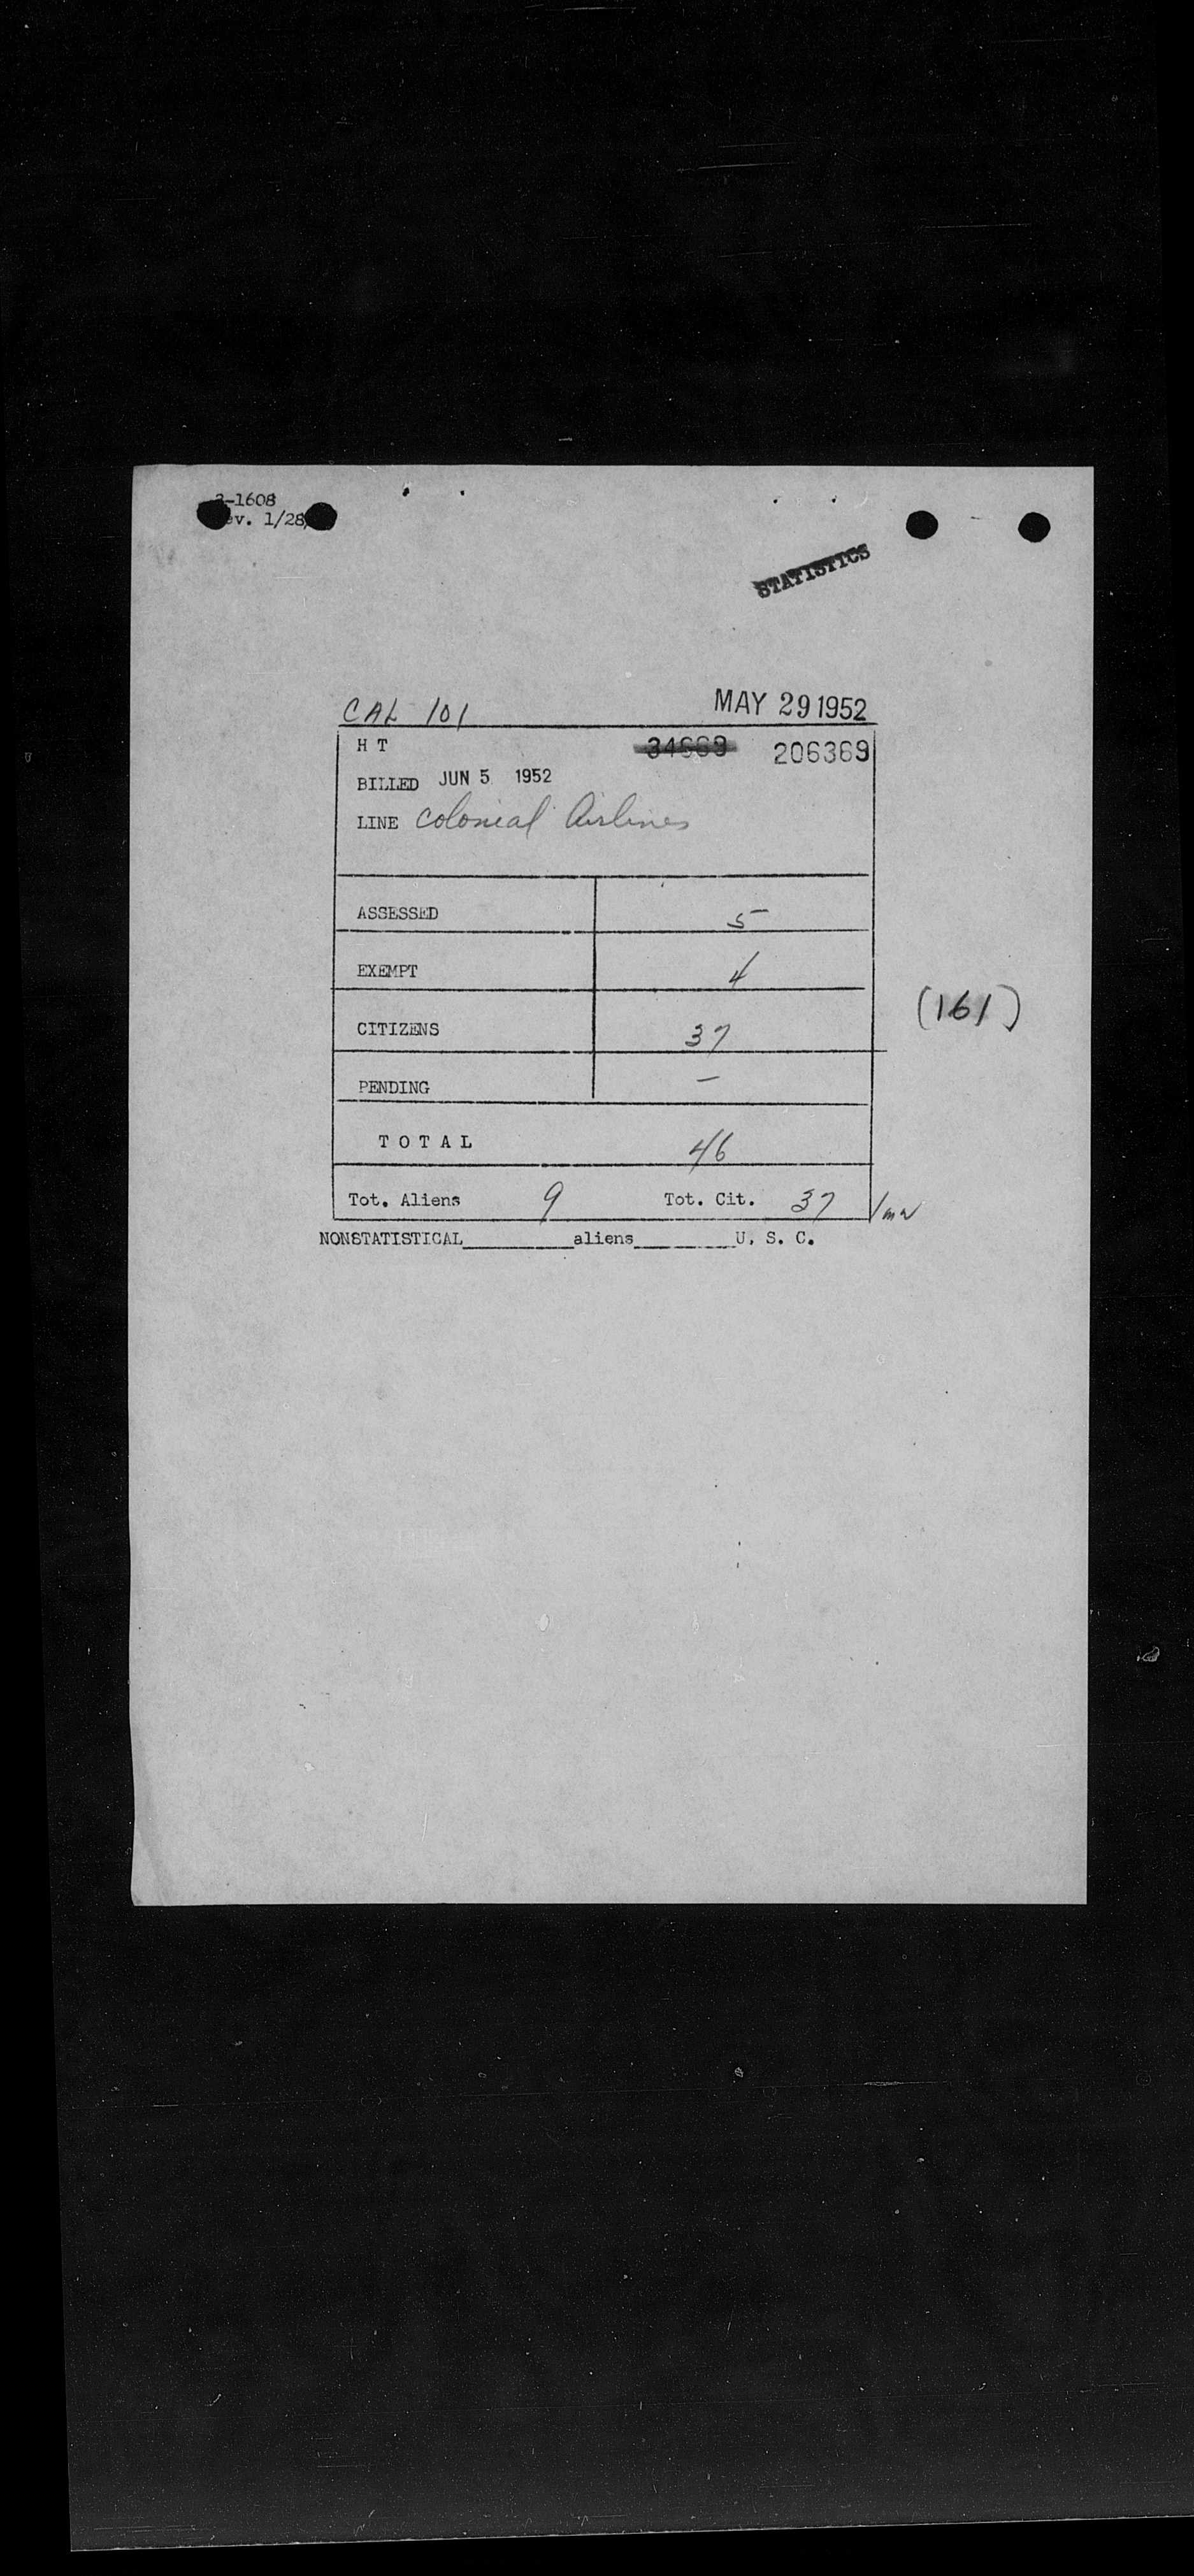 -1608
ev. 1/28
STATISTICS
CAL 101 MAY 29 1952
H T 206369
BILLED JUN 5 1952
LINE Colonial Airlines
ASSESSED 5
EXEMPT 4
(161)
CITIZENS 37
PENDING –
T O T A L 46
Tot. Aliens 9 Tot. Cit. 37
NONSTATISTICAL__________aliens__________U. S. C.